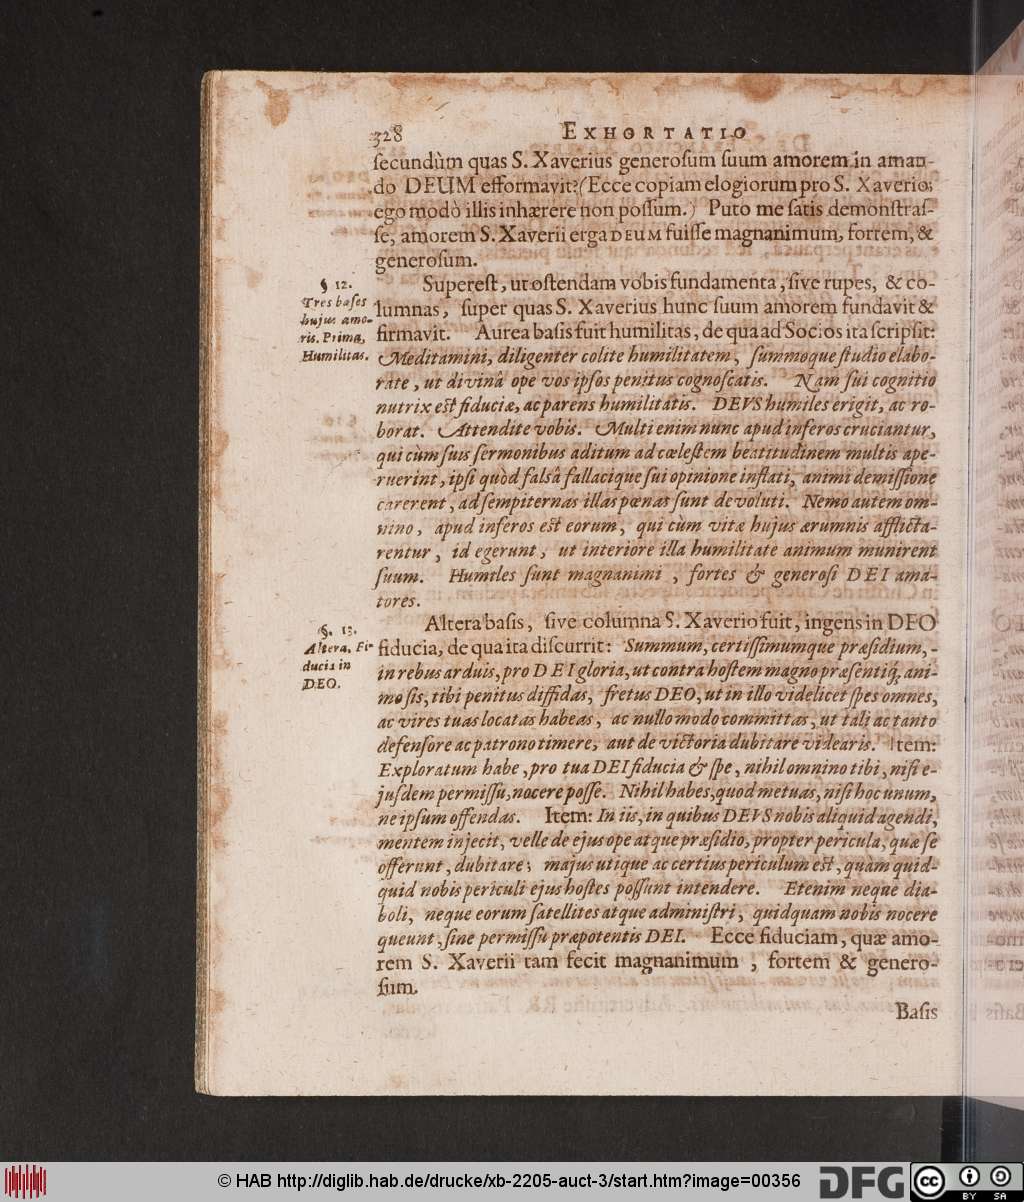 328 EXHORTATIO
ſecundùm quas S. Xaverius generoſum ſuum amorem in aman-
do DEUM efformavit? (Ecce copiam elogiorum pro S. Xaverio;
ego modò illis inhærere non poſſum.) Puto me ſatis demonſtraſ-
ſe, amorem S. Xaverii erga DEUM fuiſſe magnanimum, fortem, &
generoſum.
§ 12.
Tres baſes
hujus amo-
ris. Prima,
Humilitas.
Supereſt, ut oſtendam vobis fundamenta, ſive rupes, & co-
lumnas, ſuper quas S. Xaverius hunc ſuum amorem fundavit &
firmavit. Aurea baſis fuit humilitas, de qua ad Socios ita ſcripſit:
Meditamini, diligenter colite humilitatem, ſummoque ſtudio elabo-
rate, ut divinâ ope vos ipſos penitus cognoſcatis. Nam ſui cognitio
nutrix eſt fiduciæ, ac parens humilitatis. DEVS humiles erigit, ac ro-
borat. Attendite vobis. Multi enim nunc apud inferos cruciantur,
qui cùm ſuis ſermonibus aditum ad cœleſtem beatitudinem multis ape-
ruerint, ipſi quòd falsâ fallacique ſui opinione inflati, animi demiſſione
carerent, ad ſempiternas illas pœnas ſunt devoluti. Nemo autem om-
nino, apud inferos eſt eorum, qui cùm vitæ hujus ærumnis afflicta-
rentur, id egerunt, ut interiore illa humilitate animum munirent
ſuum. Humiles ſunt magnanimi, fortes & generoſi DEI ama-
tores.
§. 13.
Altera, Fi-
ducia in
DEO.
Altera baſis, ſive columna S. Xaverio fuit, ingens in DEO
fiducia, de qua ita diſcurrit: Summum, certiſſimumque præſidium,
in rebus arduis, pro DEI gloria, ut contra hoſtem magno præſentiq́; ani-
mo ſis, tibi penitus diffidas, fretus DEO, ut in illo videlicet ſpes omnes,
ac vires tuas locatas habeas, ac nullo modo committas, ut tali ac tanto
defenſore ac patrono timere, aut de victoria dubitare videaris. Item:
Exploratum habe, pro tua DEI fiducia & ſpe, nihil omnino tibi, niſi e-
juſdem permiſſu, nocere poſſe. Nihil habes, quod metuas, niſi hoc unum,
ne ipſum offendas. Item: In iis, in quibus DEVS nobis aliquid agendi,
mentem injecit, velle de ejus ope atque præſidio, propter pericula, quæ ſe
offerunt, dubitare; majus utique ac certius periculum eſt, quàm quid-
quid nobis periculi ejus hoſtes poſſunt intendere. Etenim neque dia-
boli, neque eorum ſatellites atque adminiſtri, quidquam nobis nocere
queunt, ſine permiſſu præpotentis DEI. Ecce fiduciam, quæ amo-
rem S. Xaverii tam fecit magnanimum, fortem & genero-
ſum.
Baſis
© HAB http://diglib.hab.de/drucke/xb-2205-auct-3/start.htm?image=00356
DFG
cc BY SA